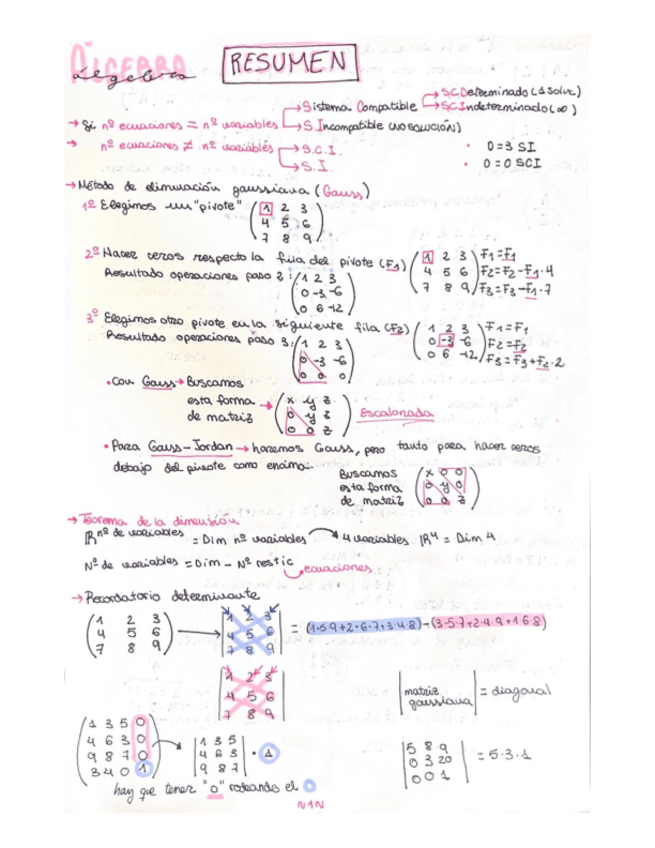 ÁLGEBRA
álgebra
RESUMEN
→ Si nº ecuaciones = nº variables → Sistema Compatible → S.C.Determinado (1 soluc)
→ S.C.Indeterminado (∞)
→ S. Incompatible (NO SOLUCIÓN)
→ nº ecuaciones ≠ nº variables → S.C.I.
→ S.I.
• 0=3 SI
• 0=0 SCI
→ Método de eliminación gaussiana (Gauss)
1º Elegimos un "pivote"
1 2 3
4 5 6
7 8 9
2º Hacer ceros respecto la fila del pivote (F1)
1 2 3 F1=F1
4 5 6 F2=F2-F1·4
7 8 9 F3=F3-F1·7
Resultado operaciones paso 2:
1 2 3
0 -3 -6
0 6 -12
3º Elegimos otro pivote en la siguiente fila (F2)
1 2 3 F1=F1
0 -3 -6 F2=F2
0 6 -12 F3=F3+F2·2
Resultado operaciones paso 3:
1 2 3
0 -3 -6
0 0 0
• Con Gauss → Buscamos
esta forma →
de matriz
x y z
0 y z
0 0 z
Escalonada
• Para Gauss-Jordan → haremos Gauss, pero tanto para hacer ceros
debajo del pivote como encima.
Buscamos
esta forma
de matriz
x 0 0
0 y 0
0 0 z
→ Teorema de la dimensión
ℝ nº de variables = Dim nº variables → 4 variables ℝ⁴ = Dim 4
Nº de variables = Dim - Nº restric
ecuaciones
→ Recordatorio determinante
1 2 3
4 5 6
7 8 9
→
1 2 3
4 5 6
7 8 9
= (1·5·9+2·6·7+3·4·8)-(3·5·7+2·4·9+1·6·8)
1 2 3
4 5 6
7 8 9
matriz
gaussiana
= diagonal
1 3 5 0
4 6 3 0
9 8 7 0
3 4 0 1
→
1 3 5
4 6 3
9 8 7
· 1
5 8 9
0 3 20
0 0 1
= 5·3·1
hay que tener "0" rodeando el
N1N